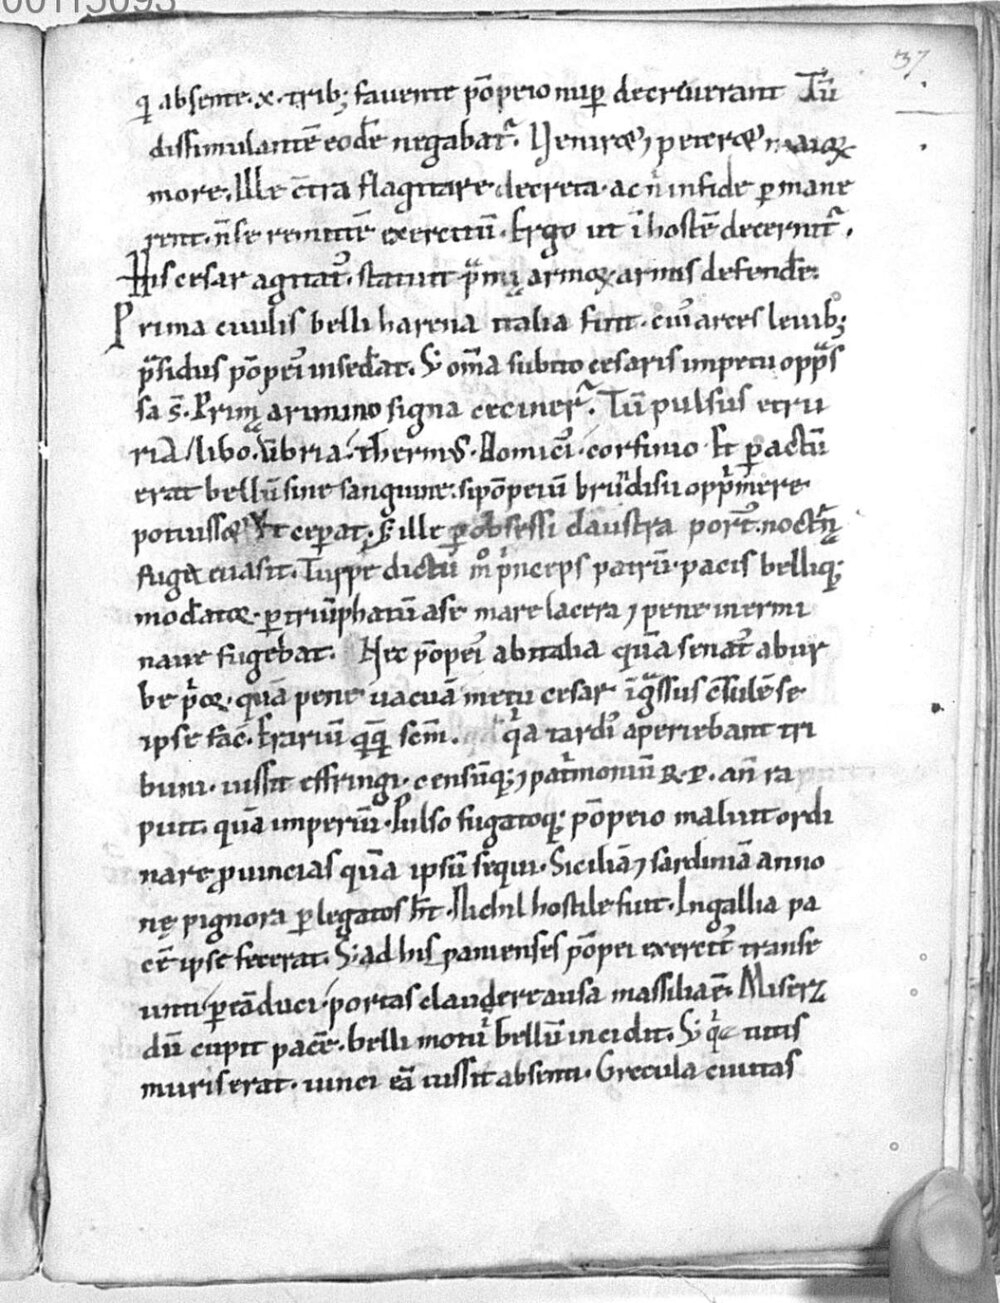 00115093
37
q absente·x·trib; favente põpeio nup decreuerant Tũ
dissimulantẽ eodẽ negabat᷑. Veniret ⁊ peteret maioꝝ
more. Ille c̃tra flagitare decreta· ac n̄ in fide ꝑmane
rent· n̄ se remittẽ exercitũ. Ergo ut ĩ hostẽ decernit᷑.
His cesar agitat᷒· statuit p̃mia armoꝝ· armis defendẽ.
Prima ciuilis belli harena italia fuit· cui᷒ arces leuib;
p̃sidiis põpei᷒ insedẽat. S; om̃a subito cesaris impetu opp̃s
sa s̃. Primũ arimino signa cecineꝝ. Tũ pulsus etru
ria libo. ũbria· therm᷒. Domici᷒· corfinio· Et ꝑactũ
erat bellũ sine sanguine· si põpeiũ brũdisii opp̃mere
potuisset Et ceꝑat· S; ille ꝑ obsessi claustra port᷒· noct̃na
fuga euasit. Turpe dictu m̊ p̃nceps patrũ· pacis belliq;
modẽator· ꝑ triũphatũ a se mare lacera ⁊ pene inermi
naue fugiebat. Nec põpei᷒ ab italia quã senat᷒ ab ur
be p̃oꝝ· quã pene uacuã metu cesar ĩg̃ssus c̃sulẽ se
ipse fac̃. Erariũ q̃q̃ sc̃m. q̃a tardi᷒ aperiebant tri
buni· iussit effringi· censũq; ⁊ pat̃moniũ R·P· añ ra
puit· quã imperiũ. Pulso fugatoq; põpeio maluit ordi
nare ꝓuincias quã ipsũ sequi· Siciliã ⁊ sardiniã anno
nę pignora ꝑ legatos h̃t. Nichil hostile fuit· In gallia pa
cẽ ipse fecerat. S; ad hispanienses põpei exercit᷒ transe
unti ꝑ eã duci· portas claudere ausa massilia ẽ. Misera
dũ cupit pacẽ· belli motu bellũ incidit. S; q̃a tutis
muris erat· uinci eã iussit absenti· Grecula ciuitas